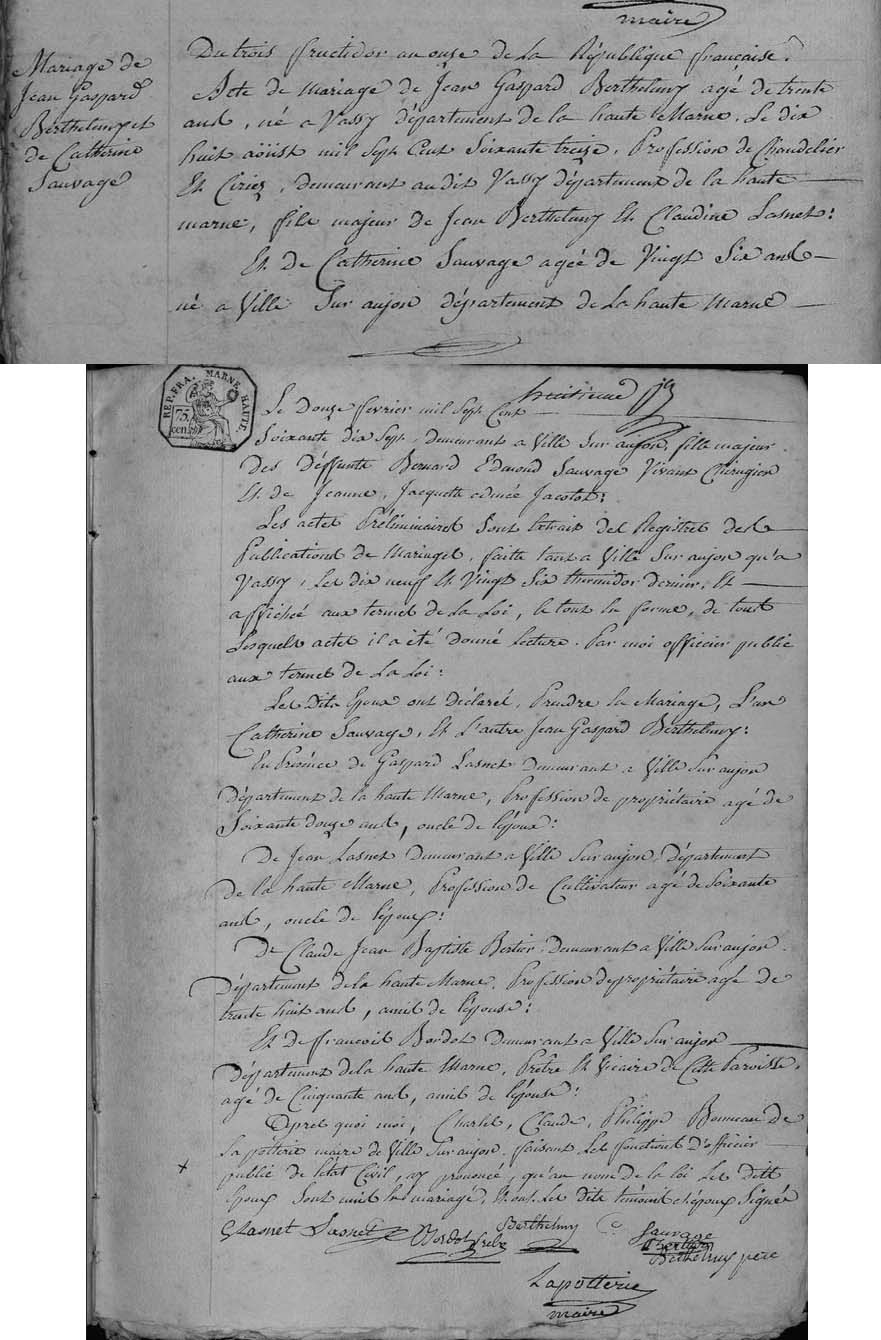 maire
Mariage de
Jean Gaspard
Berthelmy et
de Catherine
Sauvage
Du trois fructidor an onze de la République française.
Acte de mariage de Jean Gaspard Berthelmy agé de trente
ans, né a Vassy département de la haute Marne, Le dix
huit aöüst mil Sept Cent Soixante treize, Profession de Chandelier
Et Cirier, demeurant au dit Vassy département de la haute
marne, fils majeur de Jean Berthelmy Et Claudine Lasnet:
Et de Catherine Sauvage agée de Vingt Six ans
né a Ville Sur aujon département de la haute Marne
REP. FRA. MARNE HAUTE.
75 cen.
huitieme
Le Douze fevrier mil Sept Cent
Soixante dix Sept, demeurant a Ville Sur aujon, fille majeur
des deffunts Bernard Edmond Sauvage Vivant Chirugien
Et de Jeanne, Jacquette Jacotot;
Les actes Préliminaires Sont Extrait des Registres des
Publications de Mariages, faite tant a Ville Sur aujon qu'a
Vassy, Les dix neuf Et Vingt Six thermidor dernier, Et
affichée aux termes de la Loi, le tout en forme, de tous
Lesquels actes il a été donné lecture. Par moi officier public
aux termes de La Loi:
Les dits Epoux ont déclarés, Prendre en Mariage, L'un
Catherine Sauvage, Et L'autre Jean Gaspard Berthelmy:
En Présence de Gaspard Lasnet Demeurant a Ville Sur aujon
département de la haute Marne, Profession de propriétaire agé de
Soixante douze ans, oncle de lépoux:
De Jean Lasnet Demeurant a Ville Sur aujon, département
de la haute Marne, Profession de Cultivateur agé de Soixante
ans, oncle de lépoux:
De Claude Jean Baptiste Bertier Demeurant a Ville Sur aujon
Département de la haute Marne, Profession de propriétaire agé de
trente huit ans, amis de lépouse:
Et de francois Bordot Demeurant a Ville Sur aujon
Département de la haute Marne, Prêtre Et Vicaire de Cette Paroisse,
agé de Cinquante ans, amis de lépouse:
Après quoi moi, Charles, Claude, Philippe Bonneau de
La potterie maire de Ville Sur aujon, faisant Les fonctions d'officier
public de létat Civil, ay prononcé, qu'au nom de la loi Les dits
Epoux Sont unis en mariage, Et ons Les dits témoins et époux Signés
GLasnet Lasnet Bordot Berthelmy C Sauvage
Berthelmy pere
Lapotterie
maire